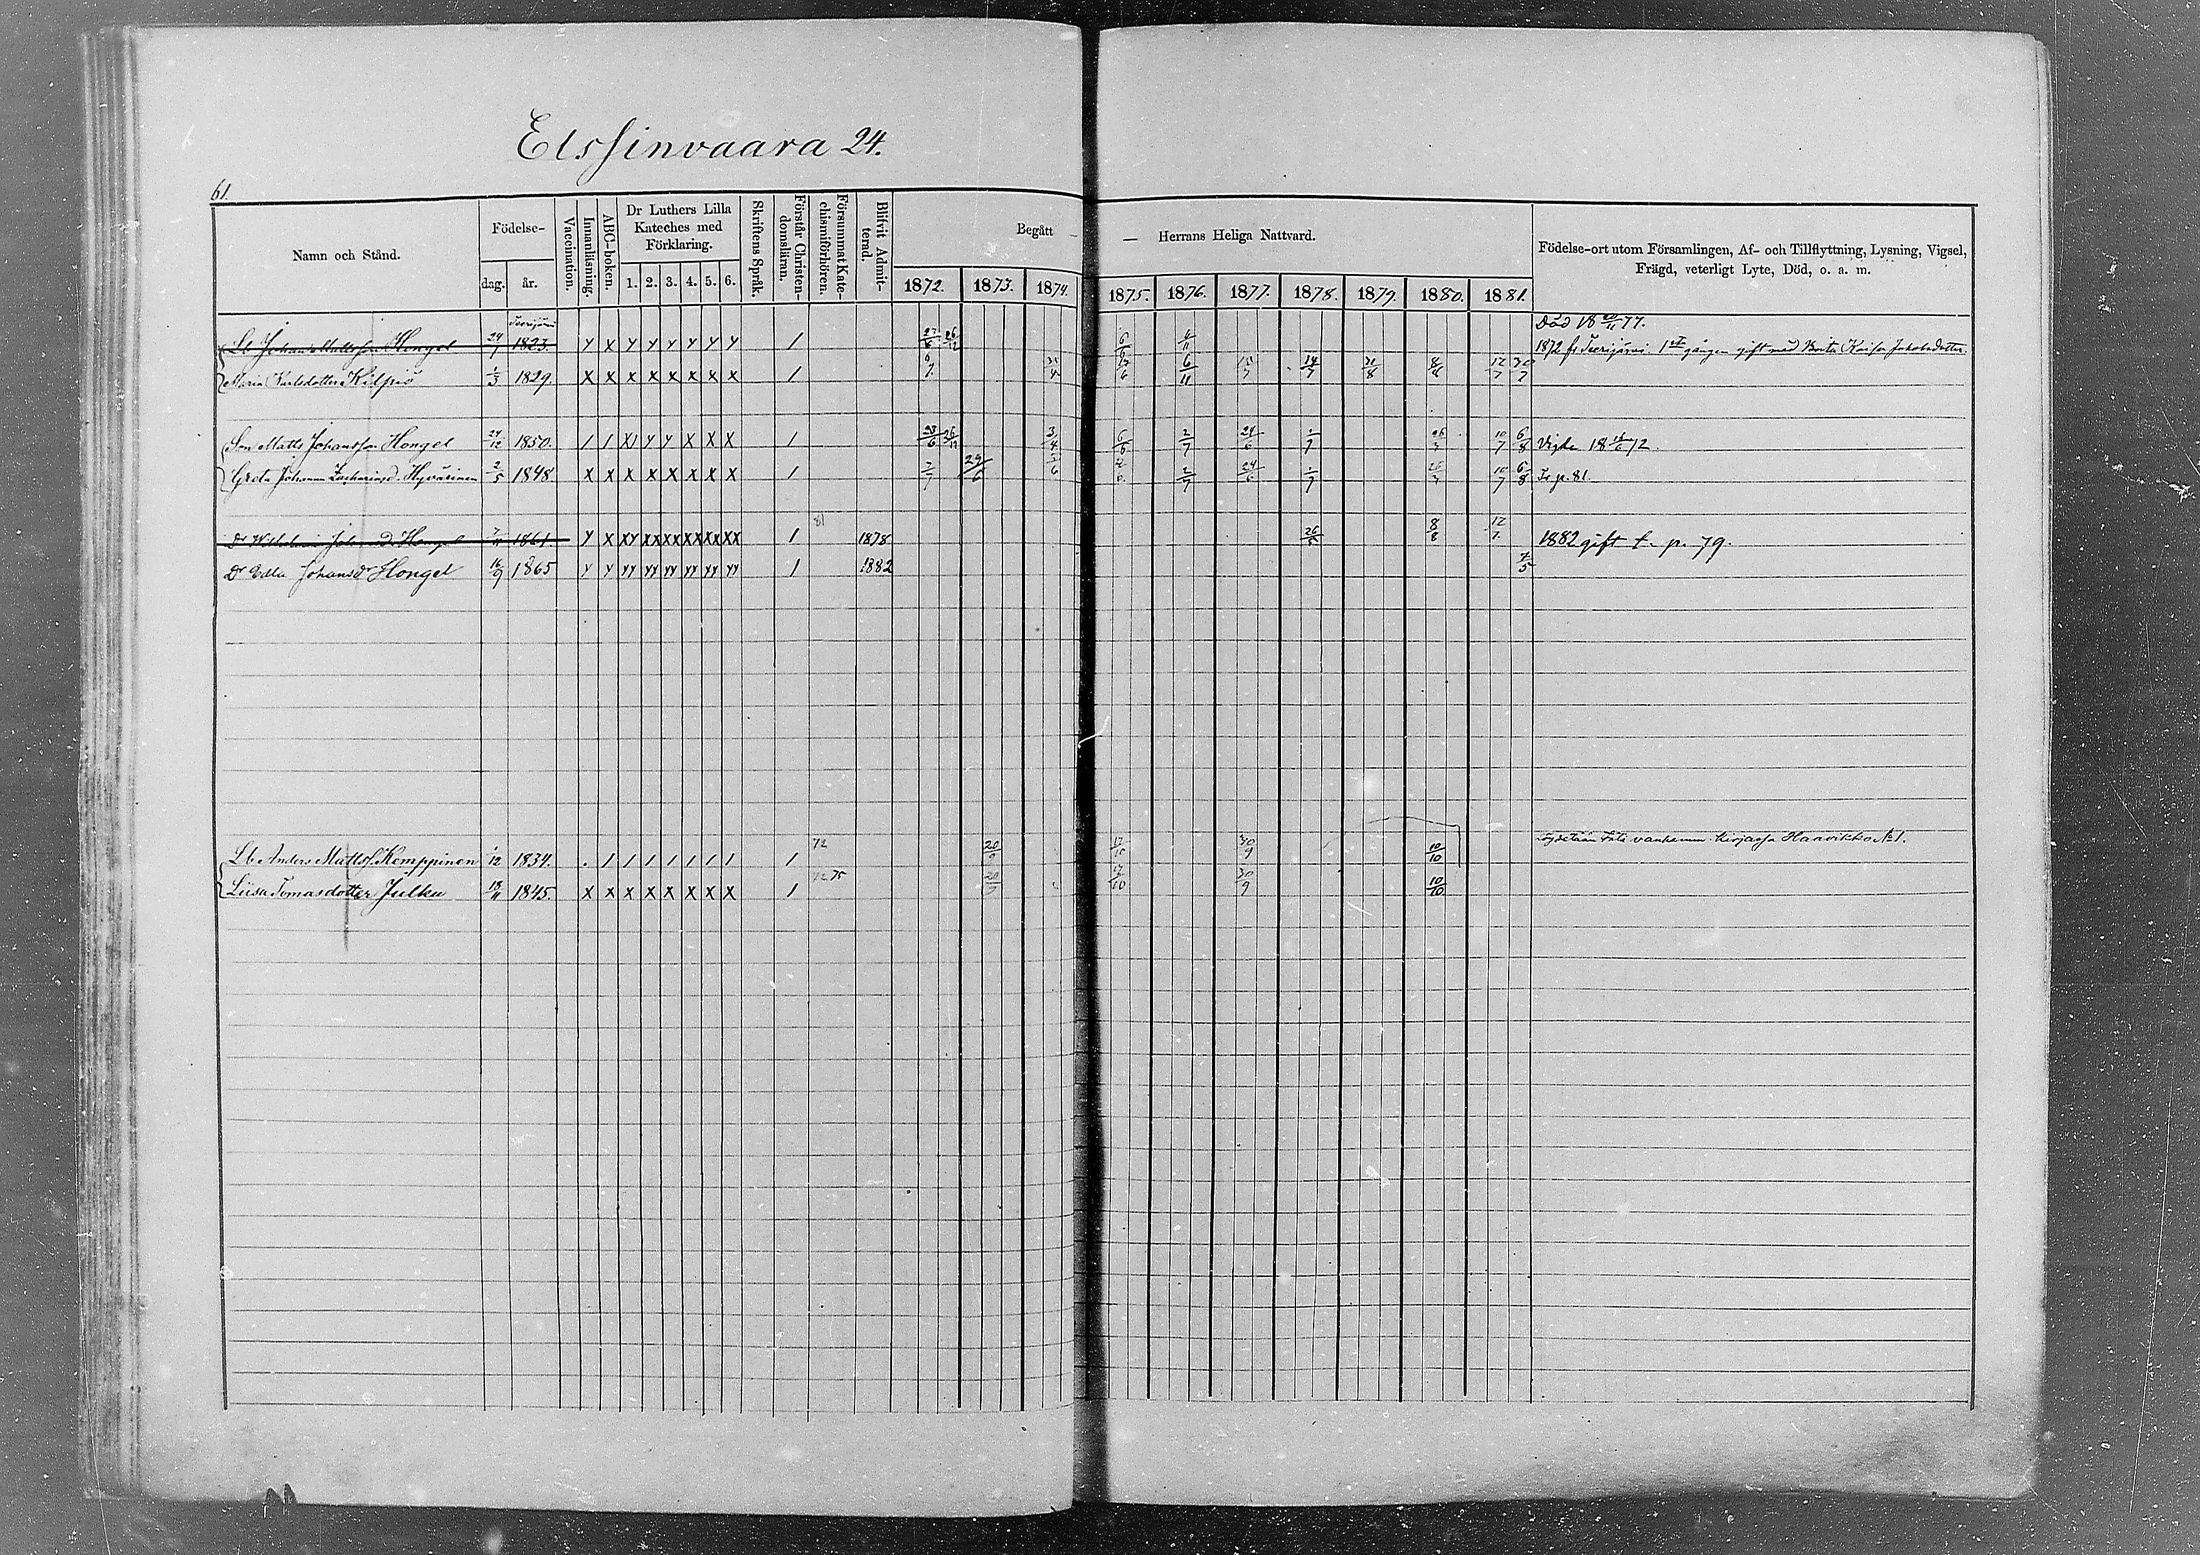 Elssinvaara 24.
61.
Namn och Stånd.
Födelse-
dag.
år.
Vaccination.
Innanläsning.
ABC-boken.
Dr Luthers Lilla
Kateches med
Förklaring.
1. 2. 3. 4. 5. 6.
Skriftens Språk.
Förstår Christen-
domsläran.
Försummat Kate-
chismiförhören.
Blifvit Admit-
terad.
Begått —
— Herrans Heliga Nattvard.
1872. 1873. 1874. 1875. 1876. 1877. 1878. 1879. 1880. 1881.
Födelse-ort utom Församlingen, Af- och Tillflyttning, Lysning, Vigsel,
Frägd, veterligt Lyte, Död, o. a. m.
Teerijärvi
Död 18 77.
Lb Johan Mattsson Hongel 24/7 1823. y x y y y y y y 1 6/11 1872 fr Teerijärvi. 1sta gången gift med Brita Kaisa Jakobsdotter.
Maria Karlsdotter Kilpiö 1/3 1829. x x x x x x x x 1 6/11 14/7 8/8 12/7 30/7
Son Matts Johansson Hongel 24/12 1850. 1 1 x1 y y x x x 1 28/6 26/12 3/4 6/6 2/7 24/6 1/7 10/7 6/8 Vigde 18 16/6 72.
Greta Johanna Zachariasd. Hyvärinen 2/5 1848 x x x x x x x x 1 2/7 29/6 2/7 24/6 1/7 10/7 6/8 Fr p. 81.
81
Dr Wilhelmina Johansd. Hongel 1861. y x xy xx xx xx xx xx 1 1878 26/5 8/8 12/7 1882 gift t. p. 79.
Dr Edla Johansdr Hongel 16/9 1865 y y yy yy yy yy yy yy 1 1882
Lb Anders Mattsf. Kemppinen 1/12 1834. 1 1 1 1 1 1 1 1 72 20/9 17/10 30/9 10/10 Löydetään tätä vanhemm. kirjassa Haavikko № 1.
Liisa Tomasdotter Julku 18/11 1845. x x x x x x x x 1 72 75 20/9 17/10 30/9 10/10